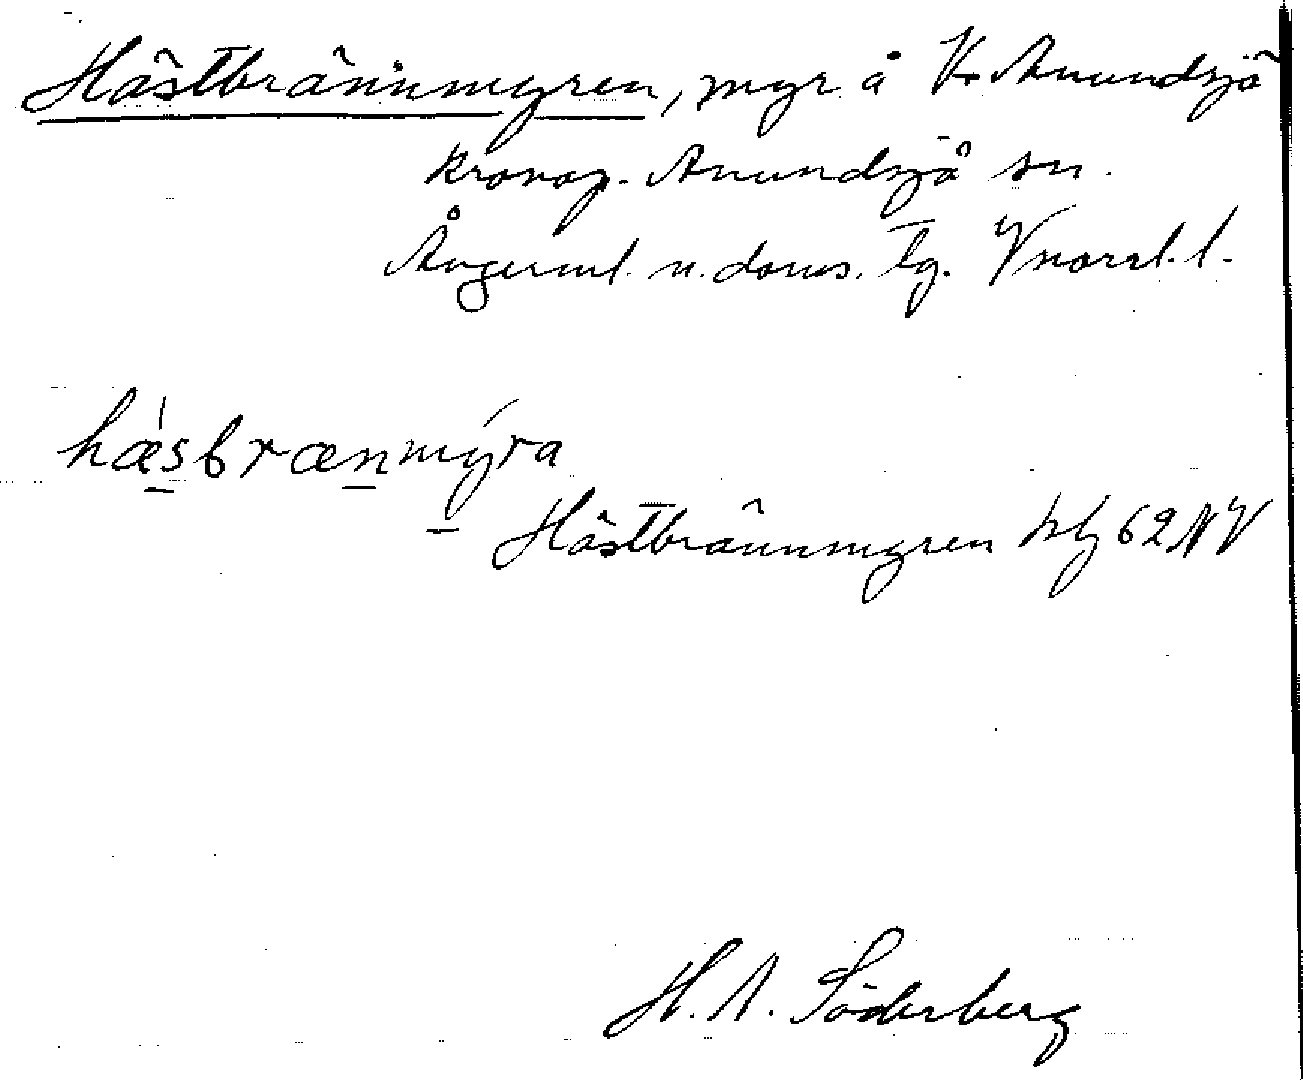 Hästbrännmyren, myr å V. Anundsjö
kronop. Anundsjö sn.
Ångerml. n. doms. tg. Vnorrl. l.
hæsbrænmýra
Hästbrännmyren kbl 62 NV
H. A. Söderberg